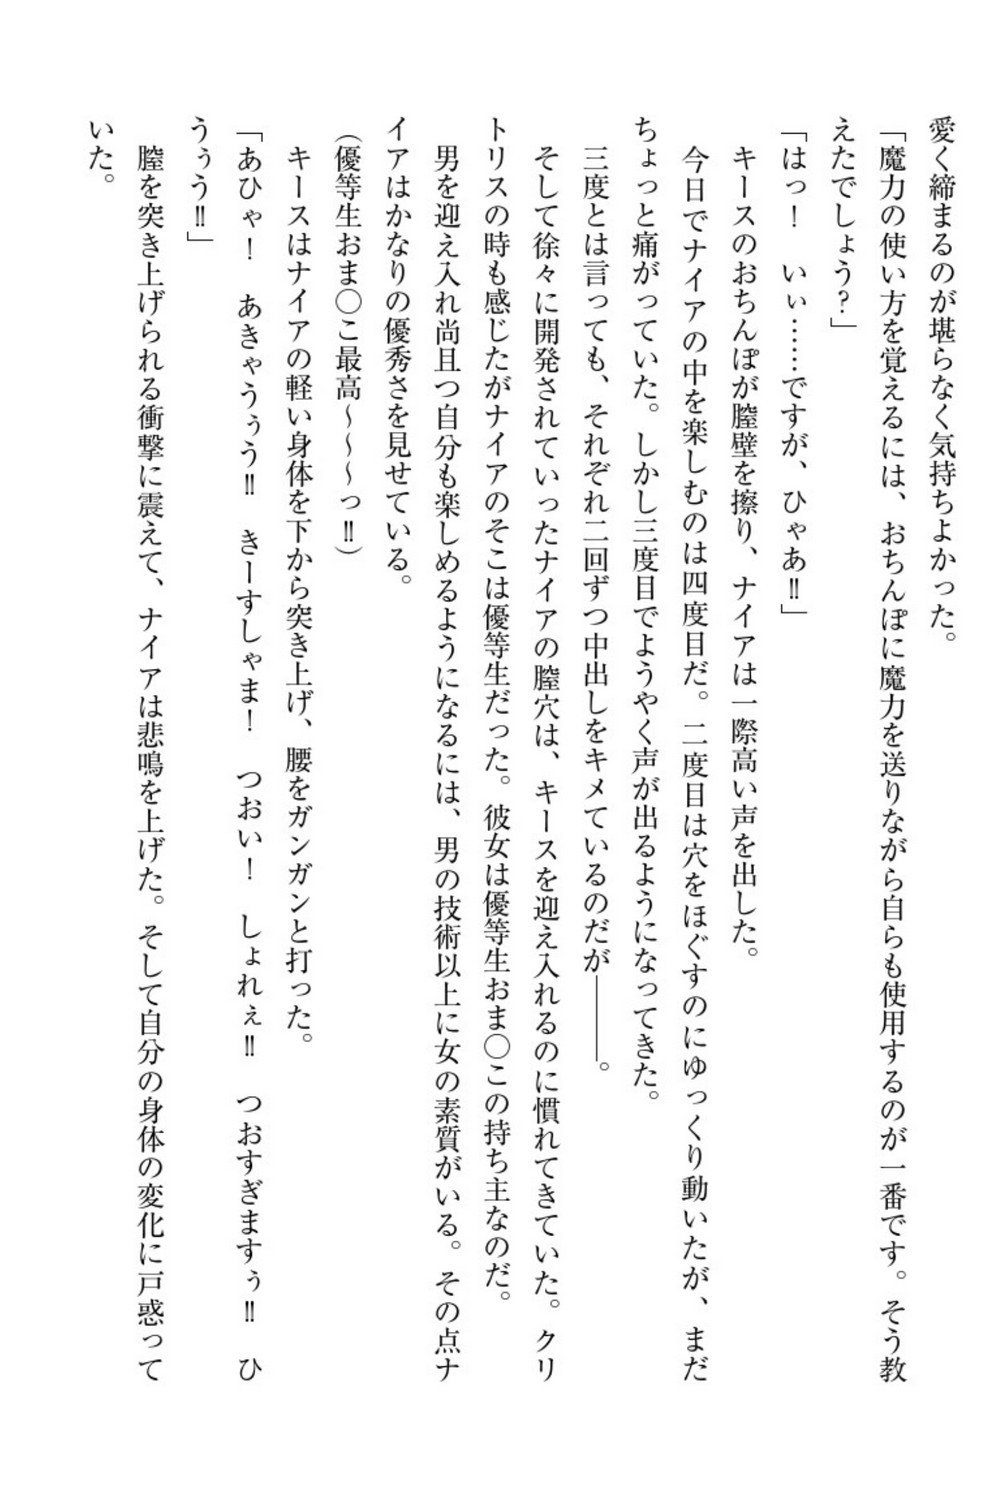 愛く締まるのが堪らなく気持ちよかった。
「魔力の使い方を覚えるには、おちんぽに魔力を送りながら自らも使用するのが一番です。そう教
えたでしょう？」
「はっ！　いぃ……ですが、ひゃあ‼」
キースのおちんぽが膣壁を擦り、ナイアは一際高い声を出した。
今日でナイアの中を楽しむのは四度目だ。二度目は穴をほぐすのにゆっくり動いたが、まだ
ちょっと痛がっていた。しかし三度目でようやく声が出るようになってきた。
三度とは言っても、それぞれ二回ずつ中出しをキメているのだが――。
そして徐々に開発されていったナイアの膣穴は、キースを迎え入れるのに慣れてきていた。クリ
トリスの時も感じたがナイアのそこは優等生だった。彼女は優等生おま〇この持ち主なのだ。
男を迎え入れ尚且つ自分も楽しめるようになるには、男の技術以上に女の素質がいる。その点ナ
イアはかなりの優秀さを見せている。
（優等生おま〇こ最高～～～っ‼）
キースはナイアの軽い身体を下から突き上げ、腰をガンガンと打った。
「あひゃ！　あきゃうぅう‼　きーすしゃま！　つおい！　しょれぇ‼　つおすぎますぅ‼　ひ
うぅう‼」
膣を突き上げられる衝撃に震えて、ナイアは悲鳴を上げた。そして自分の身体の変化に戸惑って
いた。